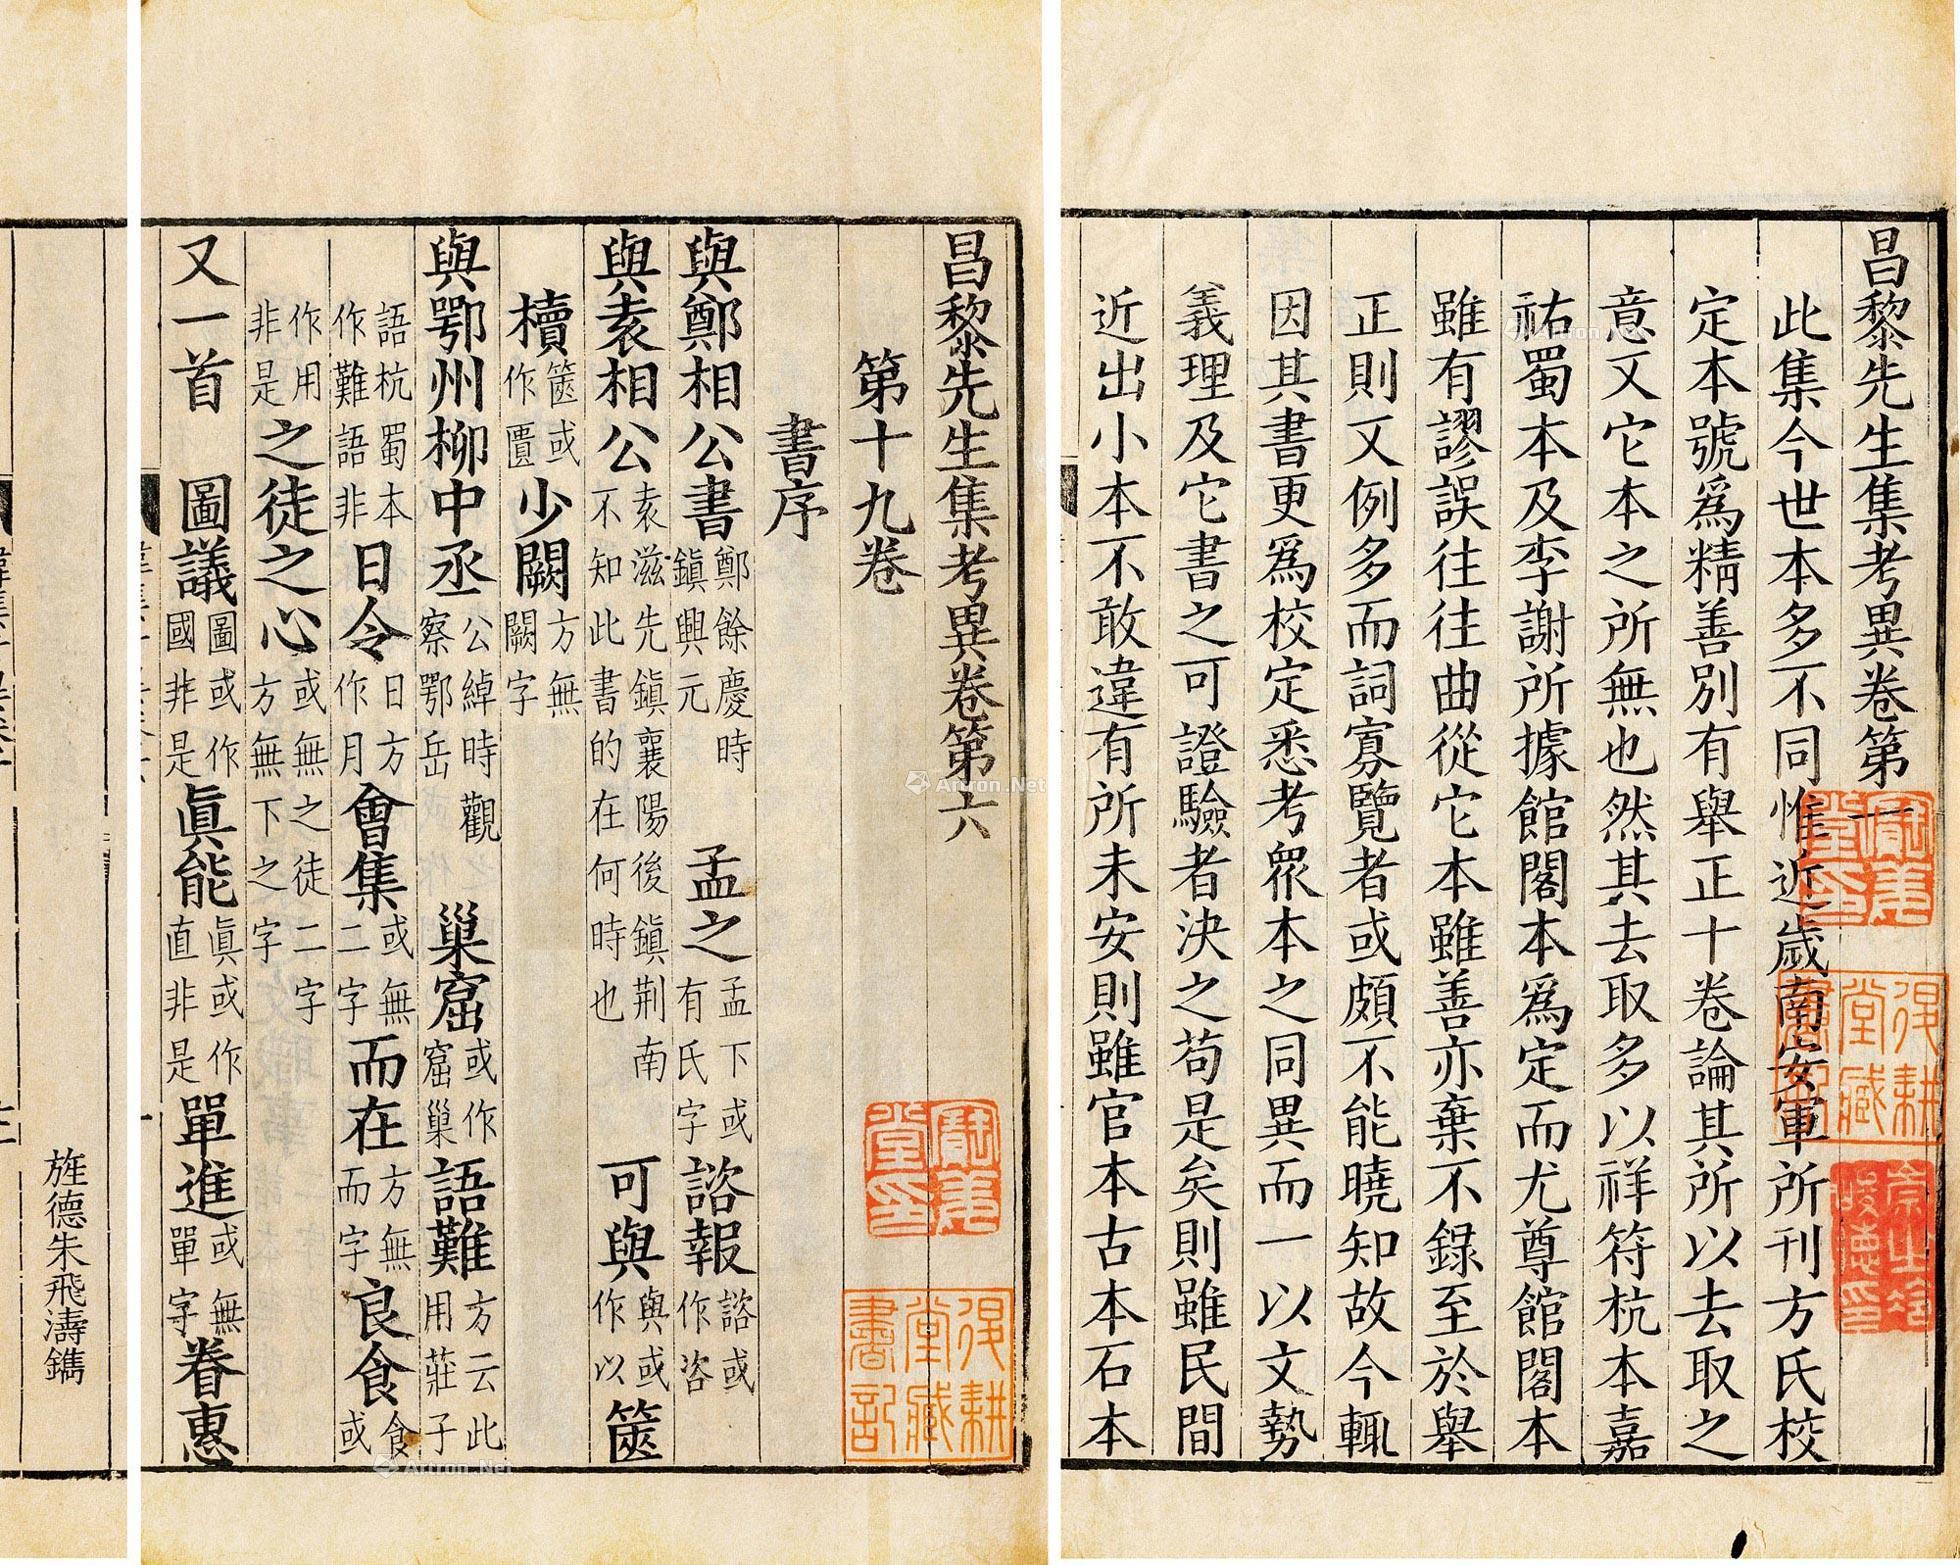 昌黎先生集考異卷第一
此集今世本多不同惟近歲南安軍所刊方氏校
定本號爲精善別有舉正十卷論其所以去取之
意又它本之所無也然其去取多以祥符杭本嘉
祐蜀本及李謝所據館閣本爲定而尤尊館閣本
雖有謬誤往往曲從它本雖善亦棄不錄至於舉
正則又例多而詞寡覽者或頗不能曉知故今輒
因其書更爲校定悉考眾本之同異而一以文勢
義理及它書之可證驗者決之苟是矣則雖民間
近出小本不敢違有所未安則雖官本古本石本
昌黎先生集考異卷第六
第十九卷
書序
與鄭相公書 鄭餘慶時鎮興元 孟之 孟下或有氏字 諮報 諮或作咨
與袁相公 袁滋先鎮襄陽後鎮荆南不知此書的在何時也 可與 與或作以 篋
櫝 篋或作匱 少闕 方無闕字
與鄂州柳中丞 公綽時觀察鄂岳 巢窟 或作窟巢 語難 方云此用莊子
語杭蜀本作難語非 日令 日方作月 會集 或無二字 而在 方無而字 良食 食或
作用非是 之徒之心 或無之徒二字方無下之字
又一首 圖議 圖或作國非是 眞能 眞或作直非是 單進 或無單字 眷惠
旌德朱飛濤鐫
Artron.Net
Artron.Net
Artron.Net